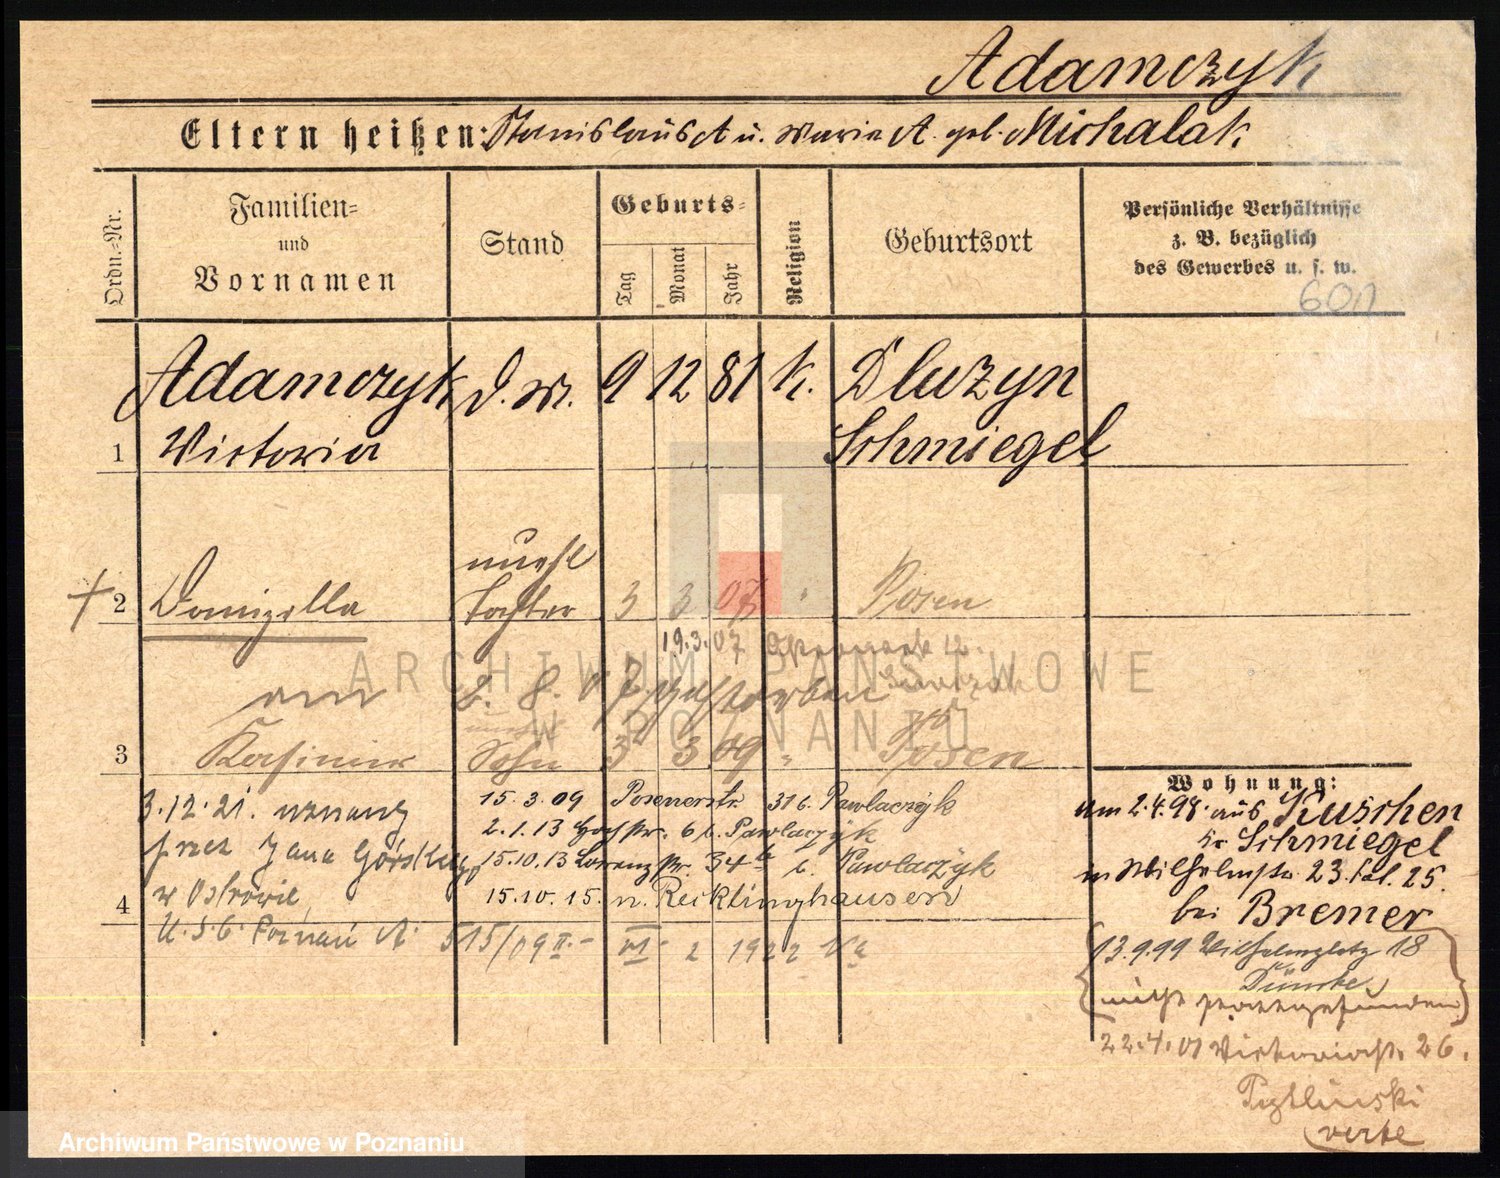 Adamczyk
Eltern heißen: Stanislaus A u. Maria A. geb. Michalak
Ordn.=Nr.
Familien=
und
Vornamen
Stand
Geburts=
Tag
Monat
Jahr
Religion
Geburtsort
Persönliche Verhältnisse
z. B. bezüglich
des Gewerbes u. s. w.
Adamczyk d. M. 9 12 81 k. Dluzyn
1 Victoria Schmiegel
unehl
2 Domizella Tochter 3 3 07 " Posen
19.3.07
am 2. 8. 07 gestorben
3 Kasimir Sohn 3 3 09 " Posen
3.12.21. uznany
przez Jana
w Ostrowie
4
U.S.C. Poznań A. 515/09 II.- VI. 2 1922
15.3.09 Posenerstr. 31 b. Pawlaczyk
2.1.13 6 b. Pawlaczyk
15.10.13 Lorenzstr. 34 b. Pawlaczyk
15.10.15. n. Recklinghausen
Wohnung:
am 2.4.98. aus Kuschen
Kr Schmiegel
in Wilhelmstr. 23. 25.
bei Bremer
13.9.99 Wilhelmplatz 18
nicht stattgefunden
22.4.01 Victoriastr. 26.
verte
ARCHIWUM PAŃSTWOWE
W POZNANIU
Archiwum Państwowe w Poznaniu